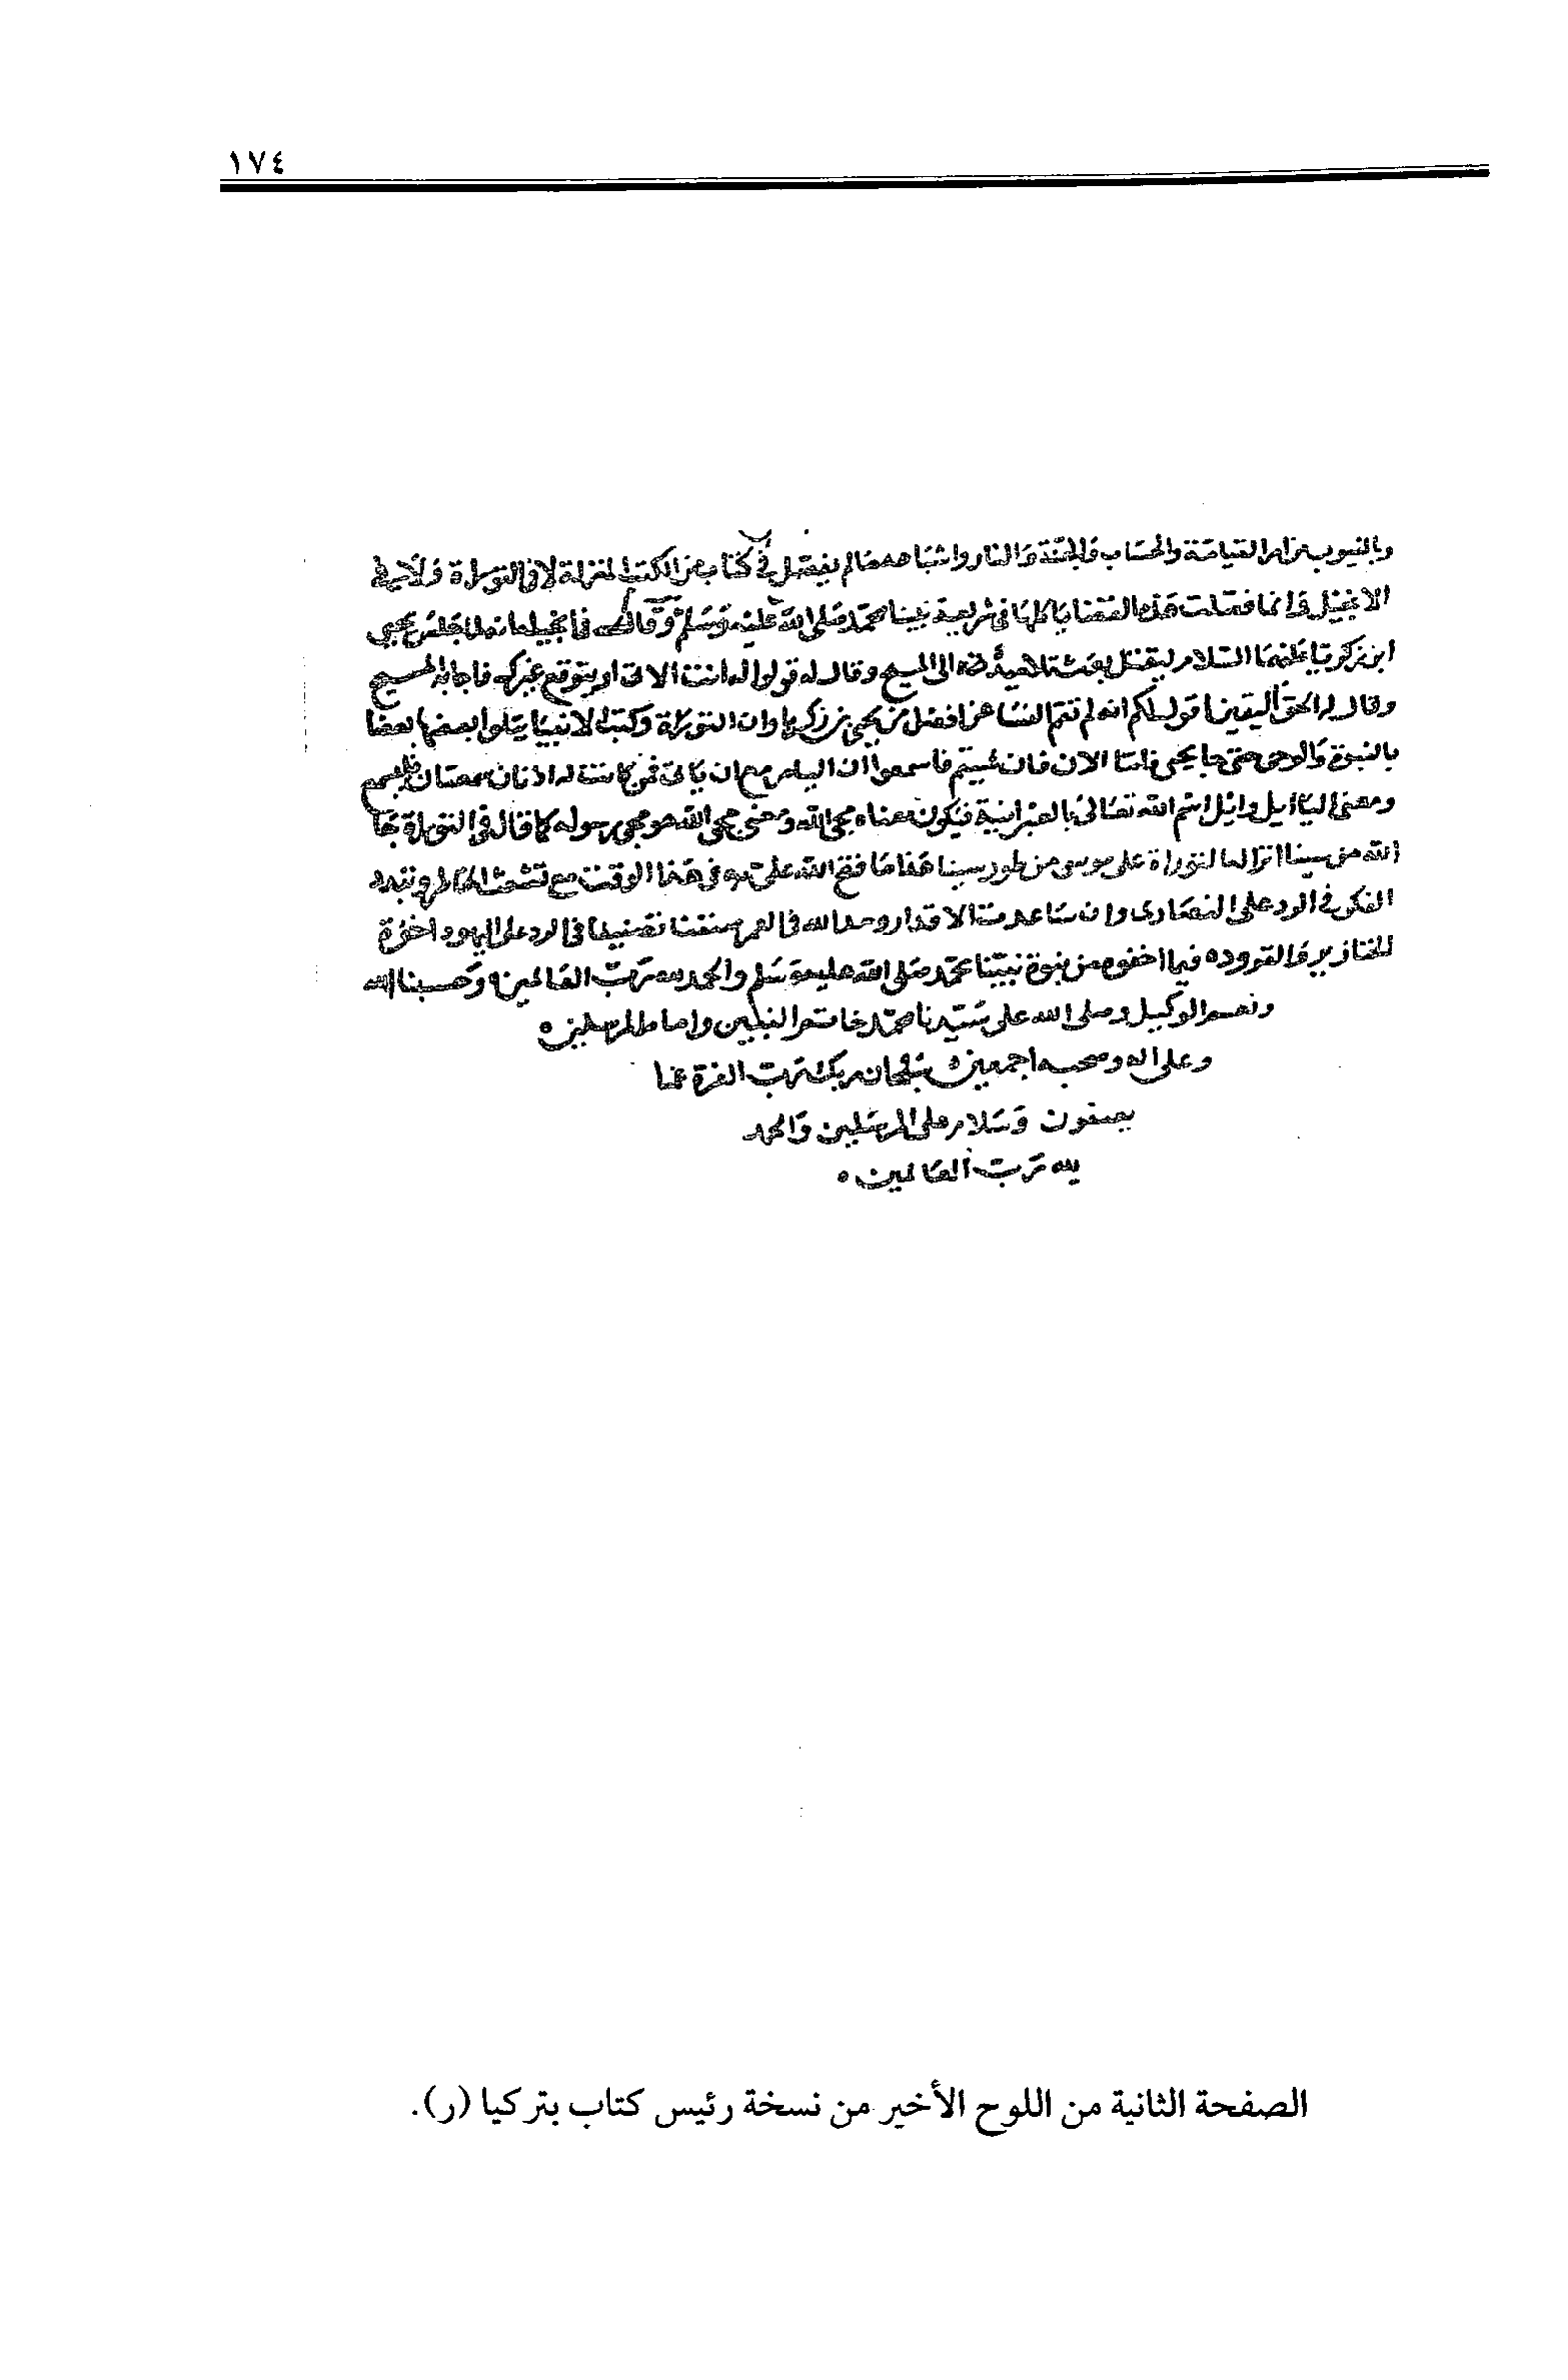 ١٧٤
وبالغيوب من امر القيامة والحساب والجنة والنار واشباههما لم يفصل في كتاب من الكتب المنزلة لا في التوراة ولا في
الانجيل وانما فصلت هذه القضايا كلها في شريعة نبينا محمد صلى الله عليه وسلم وقال في انجيله انه لاجلس يحيى
ابن زكريا عليهما السلام ليقتل بعث تلاميذه الى المسيح وقال له قولوا له انت الاتي او يتوقع غيرك فاجابه المسيح
وقال له الحق اليقين اقول لكم انه لم تقم النسا عن افضل من يحيى بن زكريا وان التوراة وكتب الانبيا يتلوا بعضها بعضا
بالنبوة والوحي حتى جا يحيى فاما الان فان شيتم فاسمعوا ان اليا مزمع ان ياتى فمن كانت له اذنان سمعتان فليسمع
ومعنى اليا ايل وايل اسم الله تعالى بالعبرانية فيكون معناه مجى الله ومعنى مجى الله هو مجى رسوله كما قال في التوراة جا
الله من سينا انزاله التوراة على موسى من طور سينا هذا ما فتح الله على به في هذا الوقت مع تشعث الخاطر وتبدد
الفكر في الرد على النصارى وان ساعدت الاقدار ومد الله في العمر صنفنا تصنيفا في الرد على اليهود اخوة
الخنازير والقرود ه فيما اخفوه من نبوة نبينا محمد صلى الله عليه وسلم والحمد لله رب العالمين ه وحسبنا الله
ونعم الوكيل وصلى الله على سيدنا محمد خاتم النبيين وامام المرسلين ه
وعلى اله وصحبه اجمعين ه سبحان ربك رب العزة عما
يصفون وسلام على المرسلين والحمد
لله رب العالمين ه
الصفحة الثانية من اللوح الأخير من نسخة رئيس كتاب بتركيا (ر).